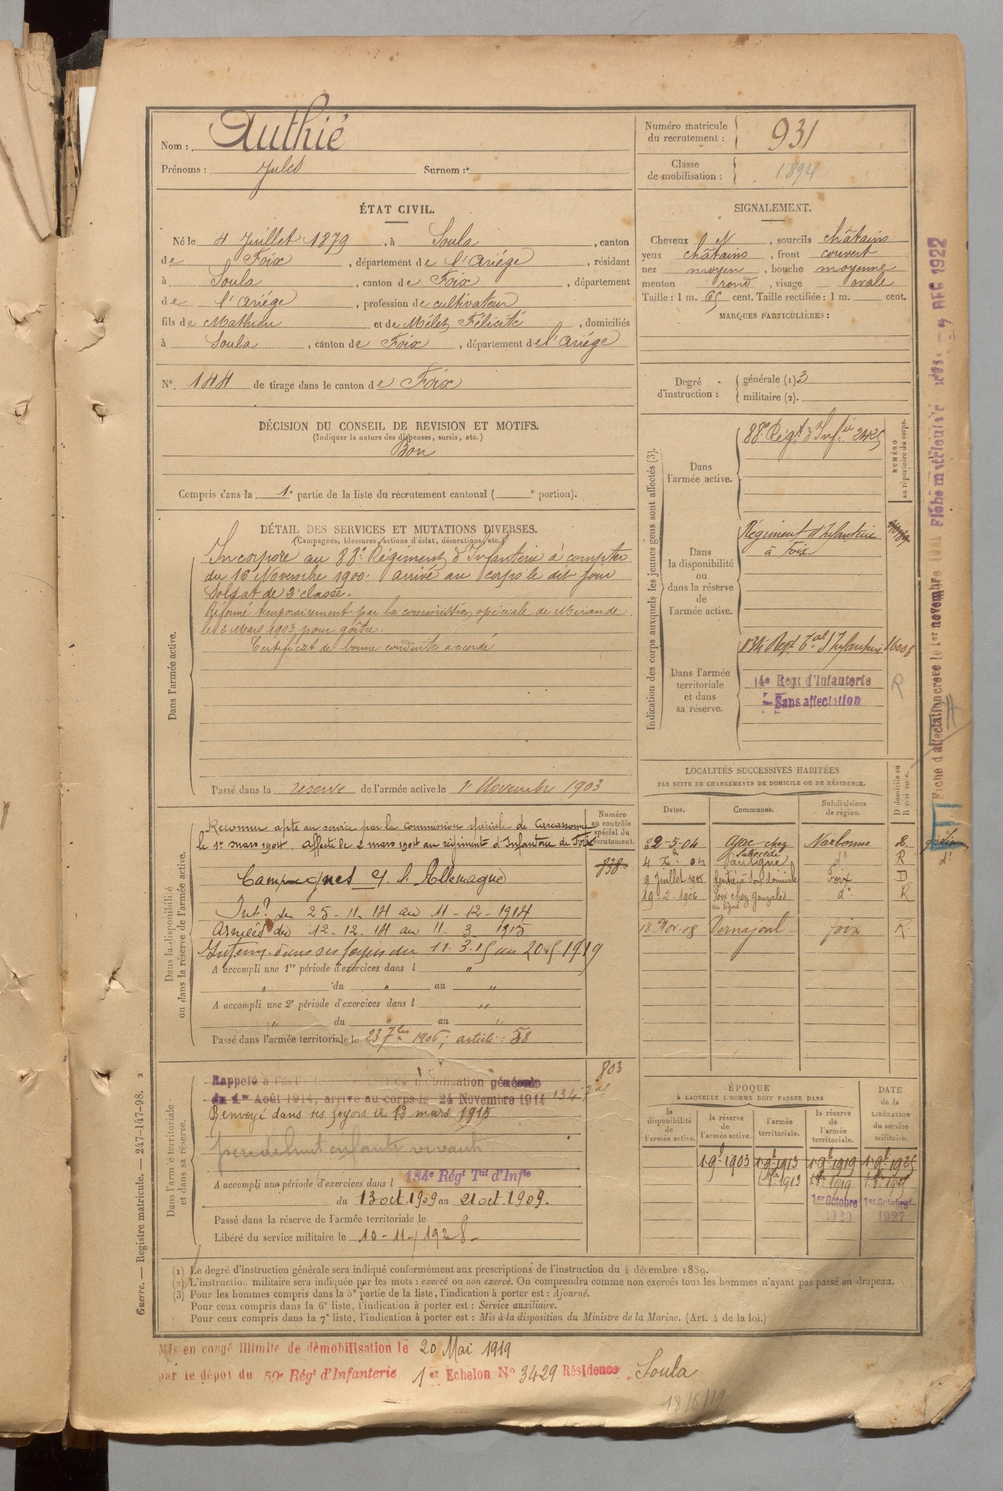 Nom : Authié
Prénoms : Jules Surnom :
Numéro matricule du recrutement : 931
Classe de mobilisation : 1894
ÉTAT CIVIL.
Né le 4 Juillet 1879, à Soula, canton
de Foix, département de l'Ariège, résidant
à Soula, canton de Foix, département
de l'Ariège, profession de cultivateur
fils de Mathieu et de Mélet, Félicité, domiciliés
à Soula, canton de Foix, département de l'Ariège
N° 144 de tirage dans le canton de Foix
SIGNALEMENT.
Cheveux N, sourcils châtains
yeux châtains, front couvert
nez moyen, bouche moyenne
menton rond, visage ovale
Taille : 1 m. 65 cent. Taille rectifiée : 1 m. cent.
MARQUES PARTICULIÈRES :
Degré d'instruction : générale (1) 3
militaire (2).
DÉCISION DU CONSEIL DE REVISION ET MOTIFS.
(Indiquer la nature des dispenses, sursis, etc.)
Bon
Compris dans la 1e partie de la liste du recrutement cantonal ( e portion).
DÉTAIL DES SERVICES ET MUTATIONS DIVERSES.
(Campagnes, blessures, actions d'éclat, décorations, etc.)
Dans l'armée active.
Incorporé au 88e Régiment d'Infanterie à compter
du 16 Novembre 1900. arrivé au corps le dit jour
Soldat de 2e classe.
Réformé temporairement par la commission spéciale de Mirande
le 2 Mars 1903 pour goître.
Certificat de bonne conduite accordé
Passé dans la réserve de l'armée active le 1er Novembre 1903
Indication des corps auxquels les jeunes gens sont affectés (3).
NUMÉRO au répertoire du corps.
Dans l'armée active.
88e Régt d'Infie 2425
Dans la disponibilité ou dans la réserve de l'armée active.
Régiment d'Infanterie
à Foix
Dans l'armée territoriale et dans sa réserve.
134 Regt Tal d'Infanterie 16008
14e Regt d'Infanterie
Sans affectation
R
Dans la disponibilité ou dans la réserve de l'armée active.
Numéro au contrôle spécial du recrutement.
838
Reconnu apte au service par la commission spéciale de Carcassonne
le 1er mars 1904. Affecté le 2 mars 1904 au régiment d'Infanterie de Foix
Campagnes c/ l'Allemagne
Intr du 25-11-14 au 11-12-1914
Armées du 12-12-14 au 11 3 1915
Interrp. dans ses foyers du 11.3.15 au 20-5 1919
A accompli une 1re période d'exercices dans l "
" du " au "
A accompli une 2e période d'exercices dans l "
" du " au "
Passé dans l'armée territoriale le 23 7bre 1905, article 58
LOCALITÉS SUCCESSIVES HABITÉES
PAR SUITE DE CHANGEMENTS DE DOMICILE OU DE RÉSIDENCE.
Dates. Communes. Subdivisions de région. D domicile ou R résidence.
2-5-04 Narbonne R
d° R
9 Juillet 1905 Rentré à son domicile Foix D
19-2-1906 Foix chez Gonzales d° R
18 Nov. 08 Vernajoul Foix R
Dans l'armée territoriale et dans sa réserve.
803
Rappelé à l'activité mobilisation générale
du 1er Août 1914, arrivé au corps le 24 Novembre 1914
Renvoyé dans ses foyers le 12 mars 1915
père de huit enfants vivants
A accompli une période d'exercices dans l 134e Régt Tal d'Infie
du 13 oct 1909 au 21 oct 1909.
Passé dans la réserve de l'armée territoriale le
Libéré du service militaire le 10-11-1928
ÉPOQUE
À LAQUELLE L'HOMME DOIT PASSER DANS
DATE de la LIBÉRATION du service militaire.
la disponibilité de l'armée active. la réserve de l'armée active. l'armée territoriale. la réserve de l'armée territoriale.
1-9b 1903 1-9b 1913 1-9b 1919 1-9b 1925
1er Octobre 1er Octobre
1927
(1) Le degré d'instruction générale sera indiqué conformément aux prescriptions de l'instruction du 4 décembre 1889.
(2) L'instruction militaire sera indiquée par les mots : exercé ou non exercé. On comprendra comme non exercés tous les hommes n'ayant pas passé au drapeau.
(3) Pour les hommes compris dans la 5e partie de la liste, l'indication à porter est : Ajourné.
Pour ceux compris dans la 6e liste, l'indication à porter est : Service auxiliaire.
Pour ceux compris dans la 7e liste, l'indication à porter est : Mis à la disposition du Ministre de la Marine. (Art. 4 de la loi.)
Guerre. — Registre matricule. — 247-147-98. 2
Mis en congé illimité de démobilisation le 20 Mai 1919
par le dépôt du 59e Régt d'Infanterie 1er Echelon N° 3429 Résidence Soula
Fiche d'affectation créée le 1er novembre Fiche matricule
DEC 1922